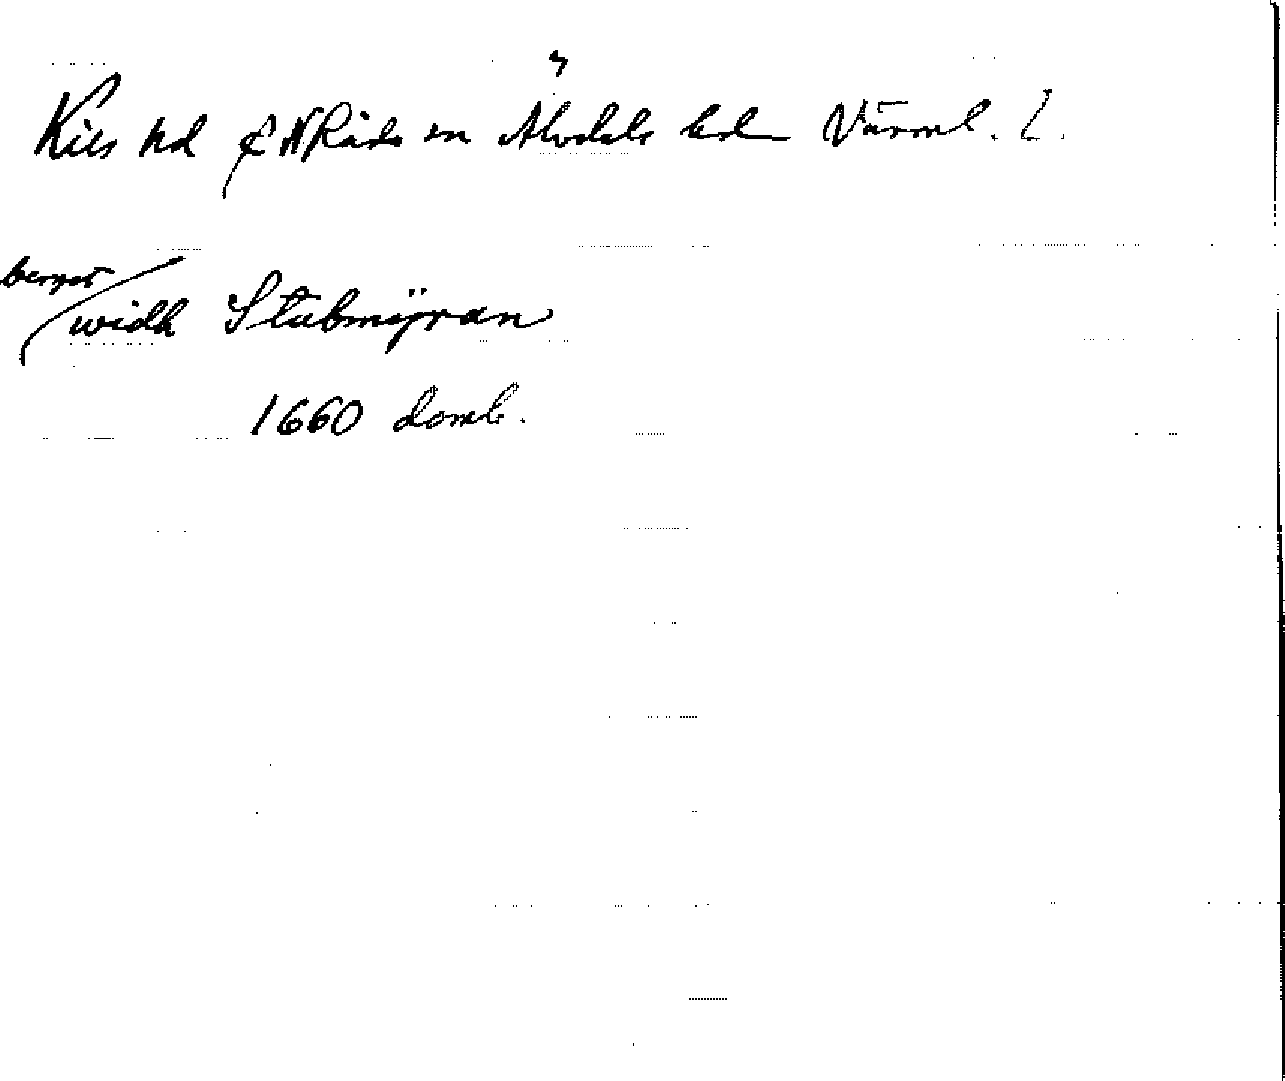 Kils hd f. N Råda sn Älvdals hd Värml. l.
berget
widh Stubmÿran
1660 domb.